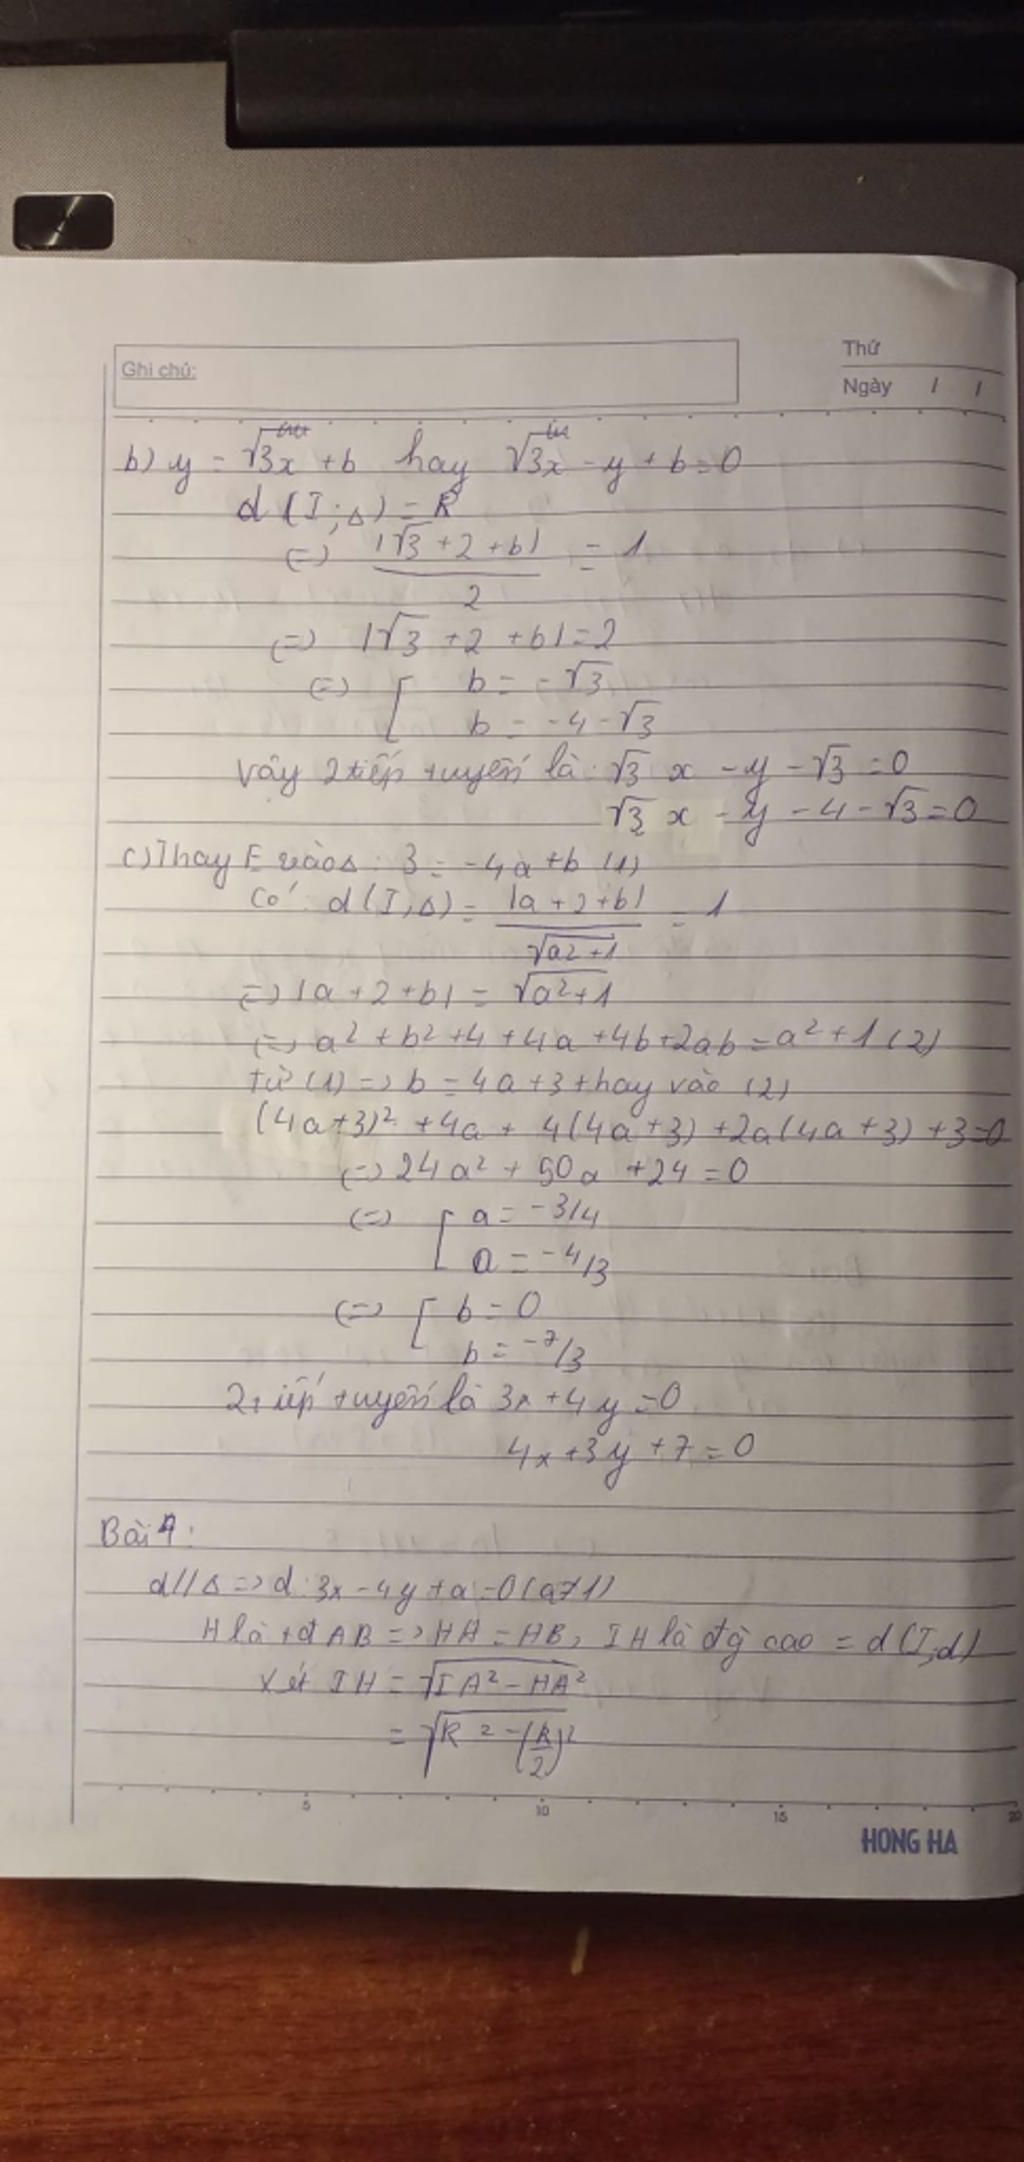 Ghi chú:
Thứ
Ngày / /
b) y = √3x + b hay √3x - y + b = 0
d(I; Δ) = R
(=) |√3 + 2 + b| / 2 = 1
(=) |√3 + 2 + b| = 2
(=) [ b = -√3
b = -4 - √3
Vậy 2 tiếp tuyến là: √3 x - y - √3 = 0
√3 x - y - 4 - √3 = 0
c) Thay E vào Δ: 3 = -4a + b (1)
Có: d(I, Δ) = |a + 2 + b| / √a² + 1 = 1
(=) |a + 2 + b| = √a² + 1
(=) a² + b² + 4 + 4a + 4b + 2ab = a² + 1 (2)
từ (1) => b = 4a + 3 thay vào (2)
(4a + 3)² + 4a + 4(4a + 3) + 2a(4a + 3) + 3 = 0
(=) 24a² + 50a + 24 = 0
(=) [ a = -3/4
a = -4/3
(=) [ b = 0
b = -7/3
2 tiếp tuyến là 3x + 4y = 0
4x + 3y + 7 = 0
Bài 4:
d // Δ => d: 3x - 4y + a = 0 (a ≠ 1)
H là tđ AB => HA = HB, IH là đg cao = d(I, d)
Xét IH = √IA² - HA²
= √R² - (R/2)²
5 10 15 20
HONG HA